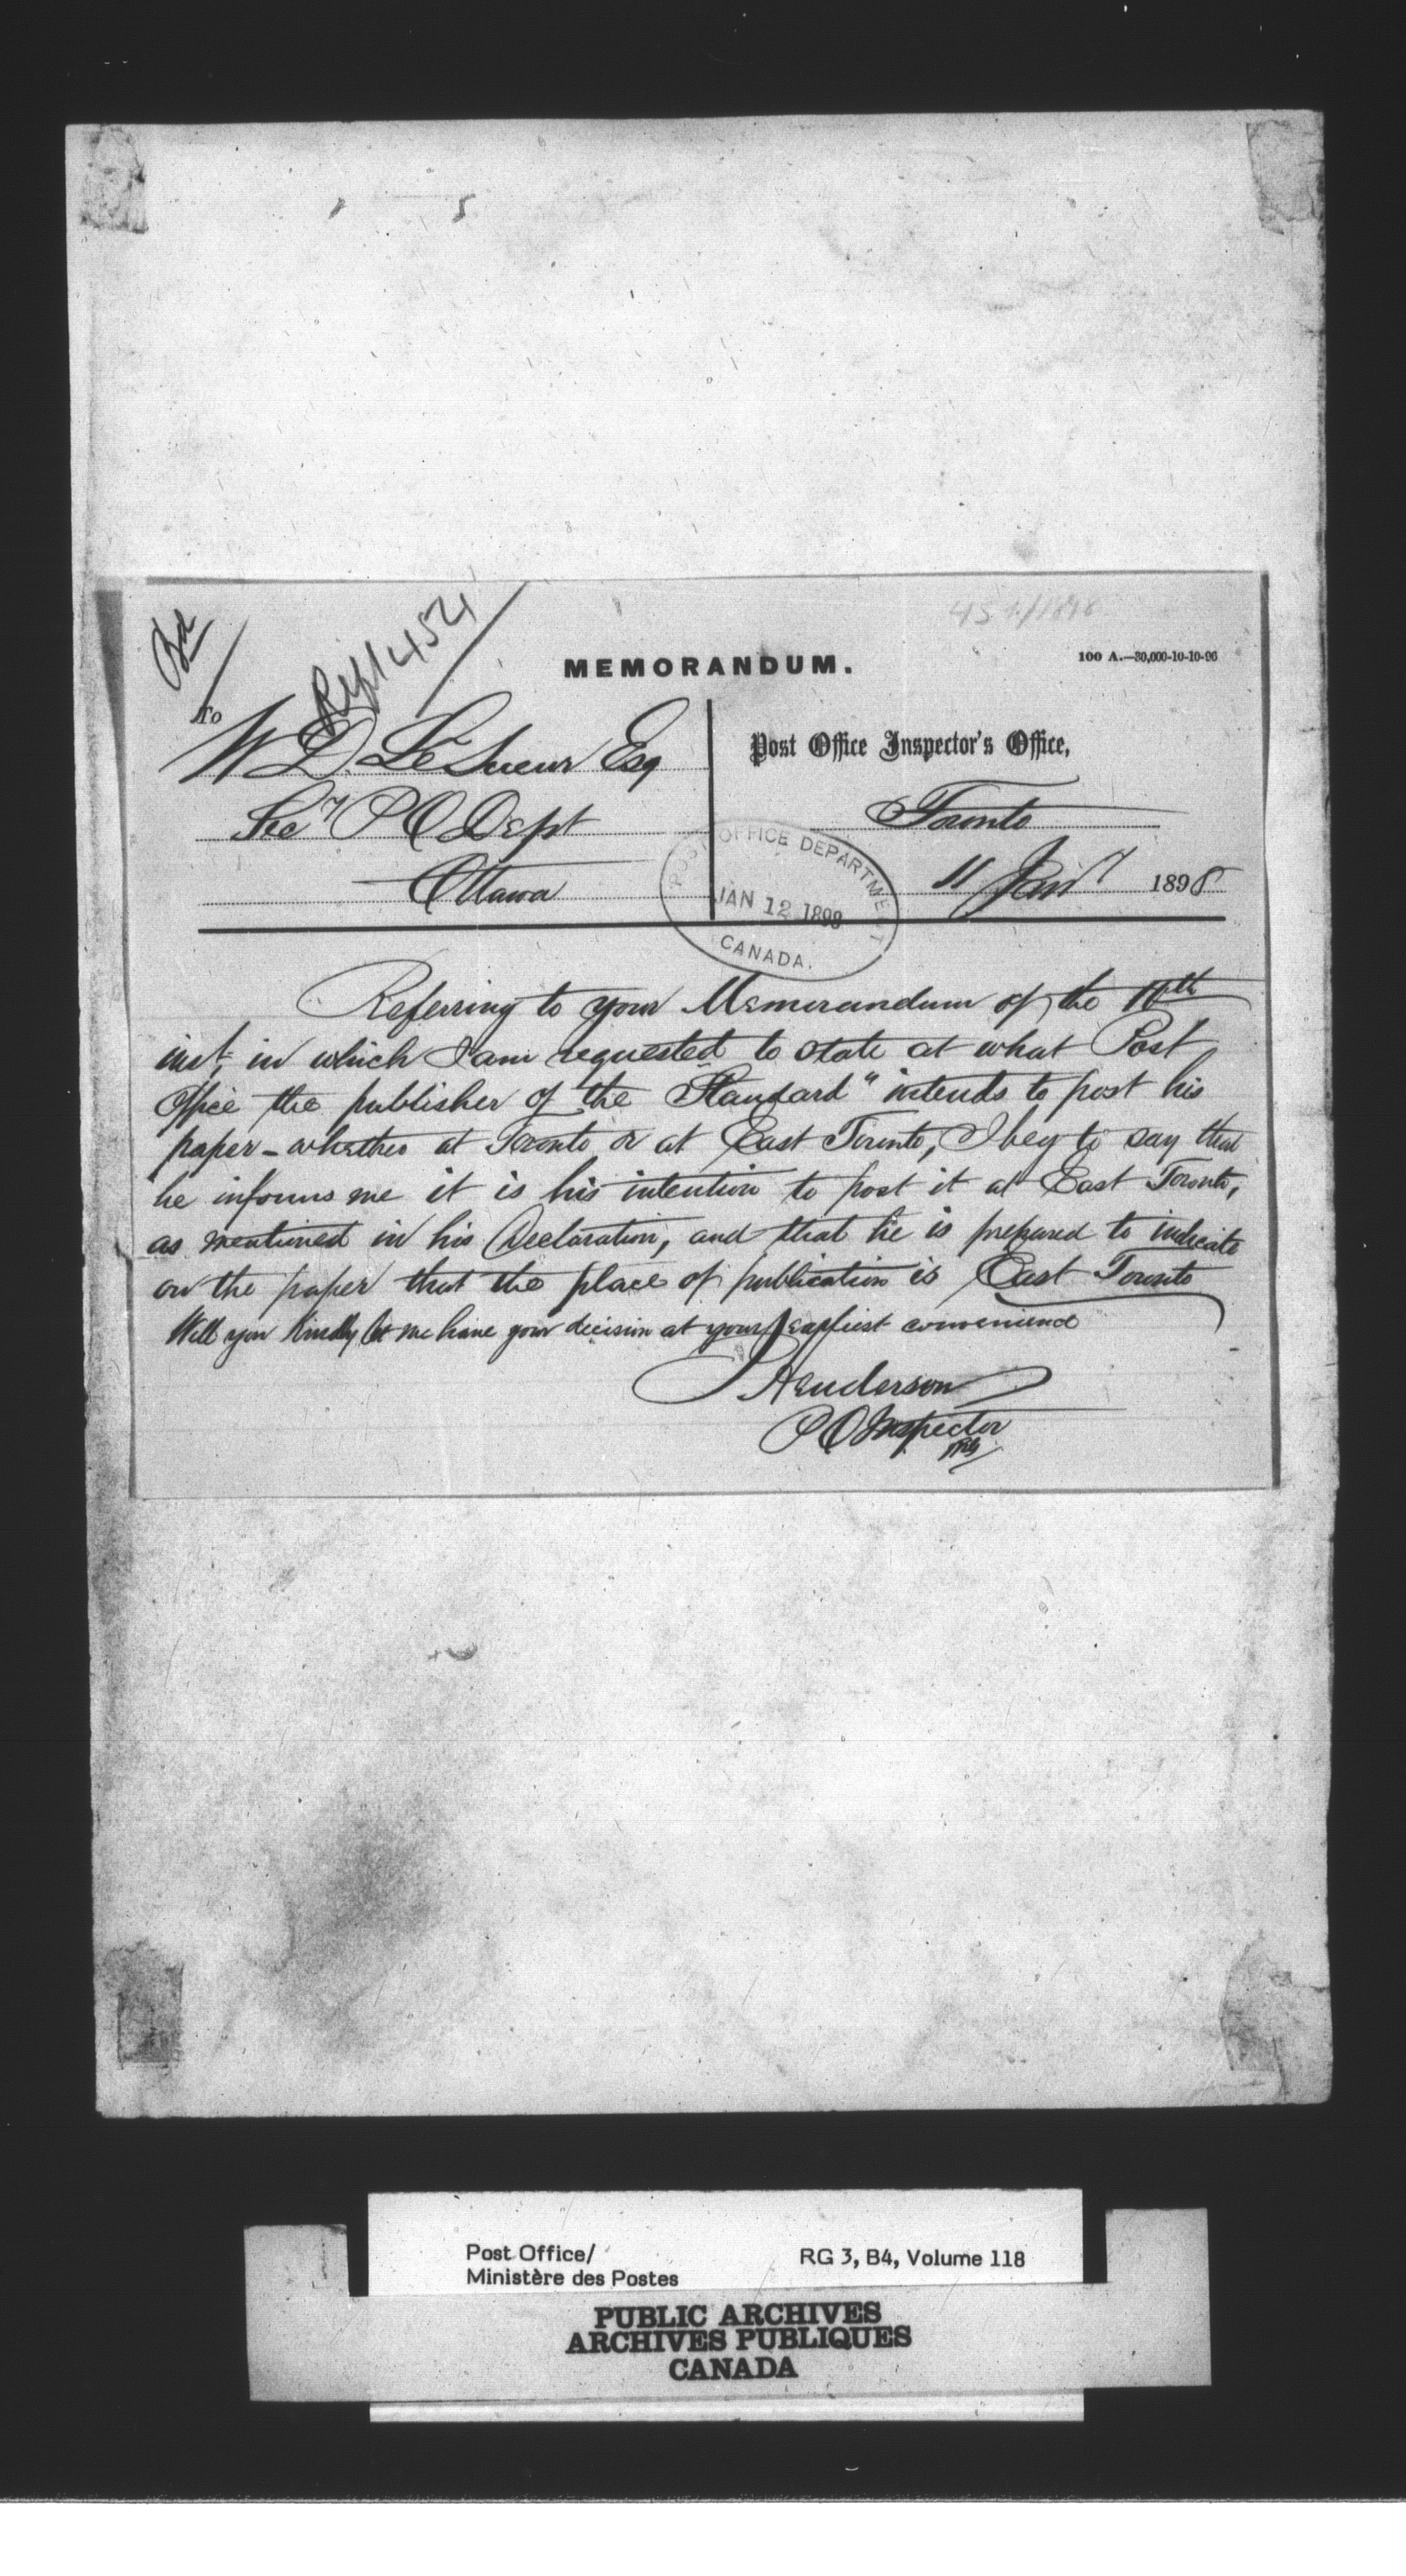 451/1898
Ref 1454
MEMORANDUM.
100 A.—30,000-10-10-96
To
W D. LeSueur Esq
Secy P O Dept
Ottawa
Post Office Inspector's Office,
Toronto
11 Jany 1898
POST OFFICE DEPARTMENT
JAN 12 1898
CANADA.
Referring to your Memorandum of the 10th
inst, in which I am requested to state at what Post
Office the publisher of the "Standard" intends to post his
paper - whether at Toronto or at East Toronto, I beg to say that
he informs me it is his intention to post it at East Toronto,
as mentioned in his Declaration, and that he is prepared to indicate
on the paper that the place of publication is East Toronto
Will you kindly let me have your decision at your earliest convenience
Henderson
P O Inspector
Post Office/
Ministère des Postes
RG 3, B4, Volume 118
PUBLIC ARCHIVES
ARCHIVES PUBLIQUES
CANADA